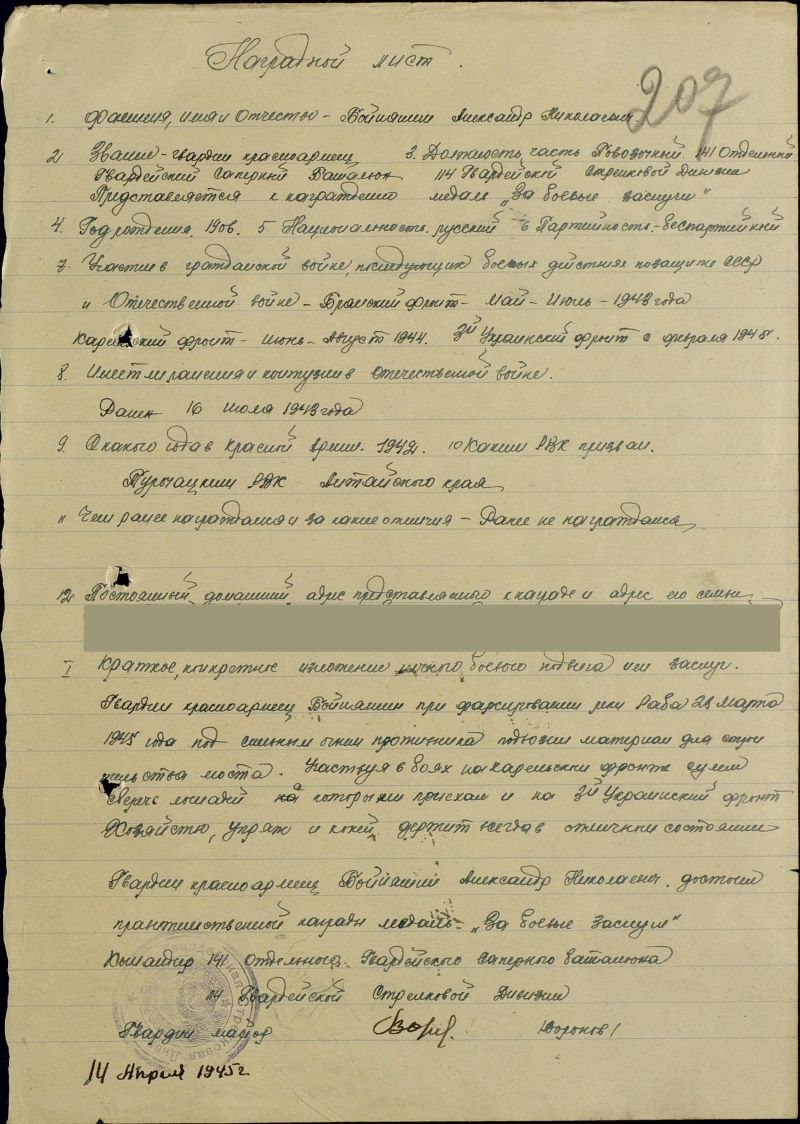 Наградной лист.
207
1. Фамилия, имя и Отчество - Александр Николаевич
2 Звание - гвардии красноармеец 3. Должность, часть Повозочный 141 Отдельный
Гвардейский Саперный Баталион 114 Гвардейской Стрелковой Дивизии
Представляется к награждению медаль „За боевые заслуги"
4. Год рождения. 1906. 5 Национальность. русский 6 Партийность - беспартийный
7. Участие в гражданской войне, последующих боевых действиях по защите СССР
и Отечественной войне - фронт - Май - Июль - 1943 года
Карельский фронт - июнь - Август 1944. 3й Украинский фронт с февраля 1945г.
8. Имеет ли ранения и контузии в отечественной войне.
Ранен 16 июля 1943 года
9. С какого года в Красной армии. 1942. 10 Каким РВК призван.
РВК Алтайского края
11 Чем ранее награждался и за какие отличия - Ранее не награждался
12. Постоянный домашний адрес представляемого к награде и адрес его семьи.
I Краткое, конкретное изложение личного боевого подвига или заслуг.
Гвардии красноармеец при форсировании реки Раба 28 Марта
1945 года под сильным огнем противника подвозил материал для строи
тельства моста. Участвуя в боях на карельском фронте сумел
сберечь лошадей на которыми приехал и на 3й Украинский фронт
Хозяйство, упряж и коней держит всегда в отличным состоянии
Гвардии красноармеец Александр Николаевич. достоин
правительственной награды медаль - „За боевые Заслуги"
Командир 141 Отдельного Гвардейского Саперного баталиона
114 Гвардейской Стрелковой Дивизии
Гвардии майор Воронов /
14 Апреля 1945г.